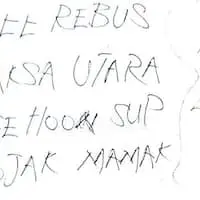 EE REBUS
KSA UTARA
EE HOON SUP
OJAK MAMAK